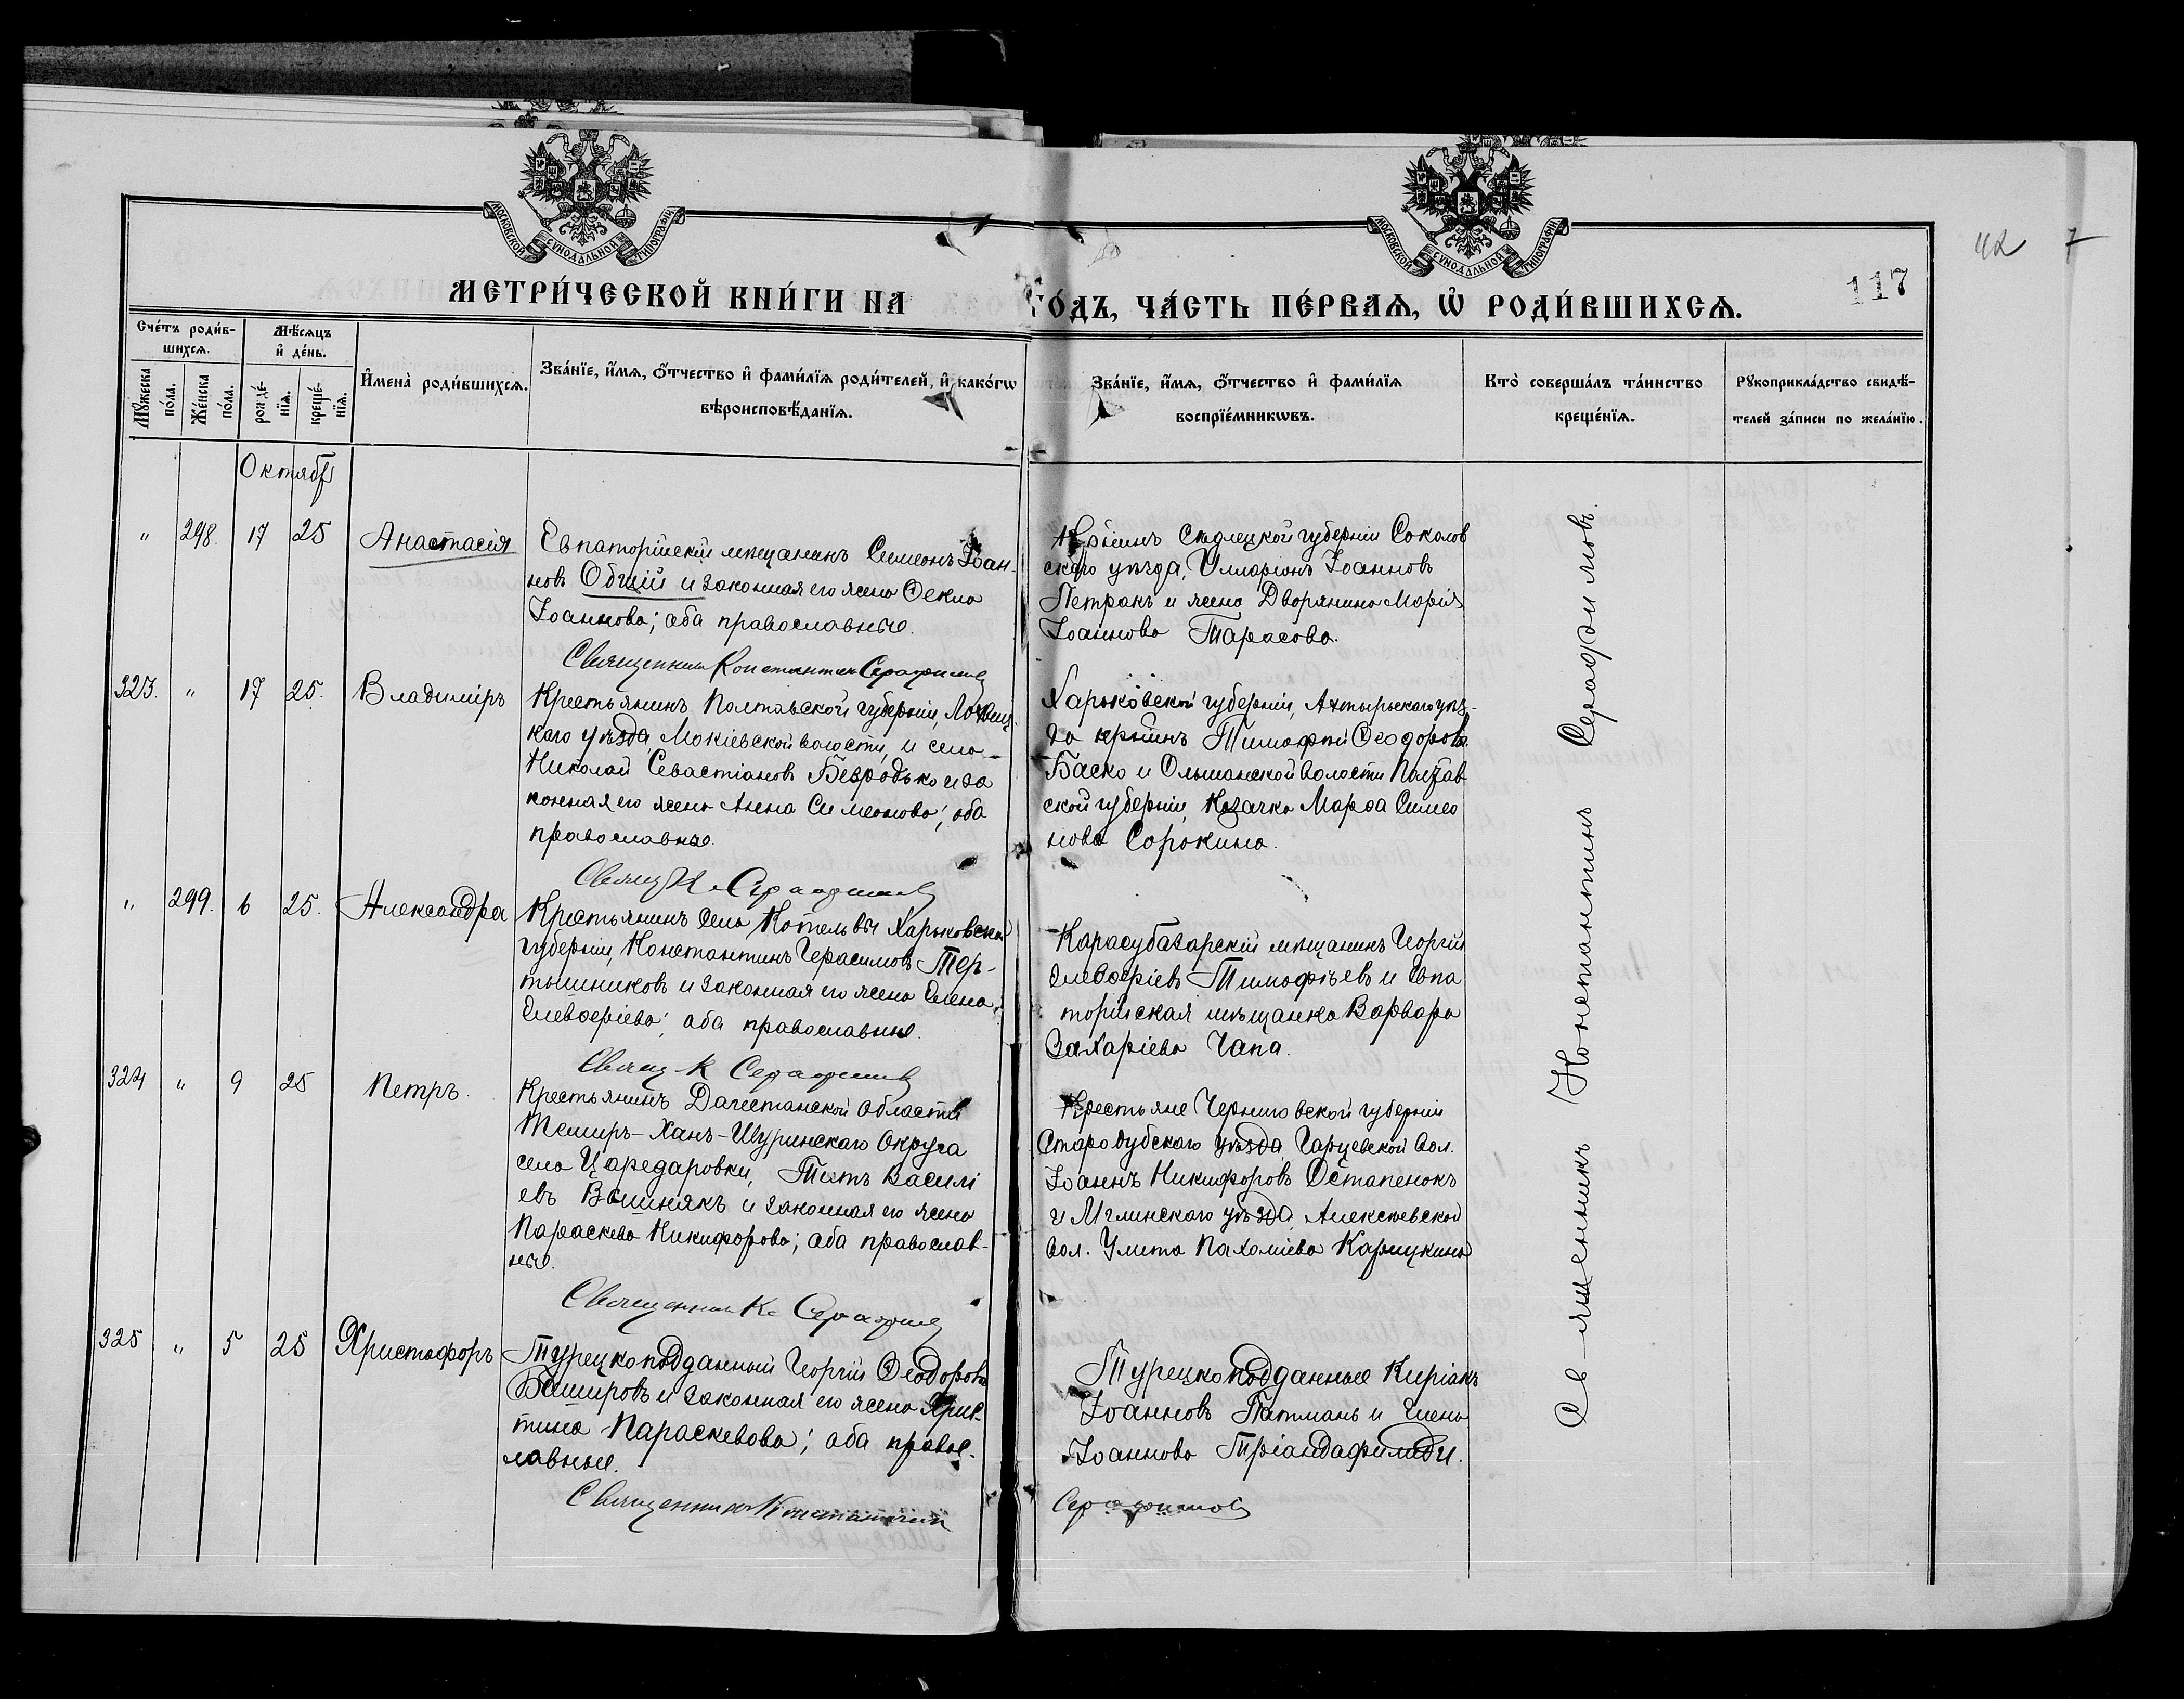 МОСКОВСКОЙ СѴНОДАЛЬНОЙ ТИПОГРАФІИ
МОСКОВСКОЙ СѴНОДАЛЬНОЙ ТИПОГРАФІИ
42 7
117
МЕТРИ́ЧЕСКОЙ КНИ́ГИ НА
ГО́ДЪ, ЧА́СТЬ ПЕ́РВАѦ, Ѡ҆ РОДИ́ВШИХСѦ.
Сче́тъ роди́в-
шихсѧ.
Мѣ́сяцъ
и҆ де́нь.
Мꙋ́жеска
по́ла.
Же́нска
по́ла.
рожде́-
нїѧ.
креще́-
нїѧ.
И҆мена̀ роди́вшихсѧ.
Зва́нїе, и҆́мѧ, ѻ҆́тчество и҆ фами́лїѧ роди́телей, и҆ како́гѡ
вѣроисповѣ́данїѧ.
Зва́нїе, и҆́мѧ, ѻ҆́тчество и҆ фами́лїѧ
воспрїе́мникѡвъ.
Кто̀ соверша́лъ та́инство
креще́нїѧ.
Рꙋкоприкла́дство свидѣ́-
телей за́писи по жела́нїю.
Октябр
" 298. 17 25 Анастасія
Евпаторійскій мѣщанинъ Симеонъ Іоан-
новъ Обчій и законная его жена Ѳекла
Іоаннова; оба православные.
Священникъ Константин Серафимов
Кр̃ьнинъ Сѣдлецкой губерніи Соколов
скаго уѣзда, Илларіонъ Іоанновъ
Петракъ и жена Дворянина Марія
Іоаннова Тарасова.
323. " 17 25. Владиміръ
Крестьянинъ Полтавской губерніи, Лохвиц
каго уѣзда Мокіевской волости, и села
Николай Севастіановъ Безродько и за
конная его жена Анна Симеонова; оба
православные.
Свящ К. Серафимов
Харьковской губерніи, Ахтырскаго уѣз-
да кр̃ьнинъ Тимофей Ѳеодоровъ
Баско и Ольшанской волости Полтав
ской губерніи, Казачка Марѳа Симео
нова Сорокина.
" 299. 6 25. Александра
Крестьянинъ села Котельвы Харьковской
губерніи, Константинъ Герасимовъ Тер-
тышниковъ и законная его жена Елена
Елевѳеріева; оба православные.
Свящ К Серафимов
Карасубазарскій мѣщанинъ Георгій
Елевѳеріевъ Тимофѣевъ и Евпа
торійская мѣщанка Варвара
Захаріева Чапа.
324 " 9 25 Петръ.
Крестьянинъ Дагестанской области
Темиръ-Ханъ-Шуринскаго Округа
села Царедаровки, Титъ Василі
евъ Вишнякъ и законная его жена
Параскева Никифорова; оба православ-
ные.
Священник К. Серафимов
Крестьяне Черниговской губерніи
Стародубскаго уѣзда, Гарцевской вол.
Іоаннъ Никифоровъ Остапенокъ
и Мглинскаго уѣзда, Алексеевской
вол. Улита Пахоміева Карпукина
325 " 5 25 Христофоръ
Турецкоподданный Георгій Ѳеодоровъ
Башировъ и законная его жена Хрис
тина Параскевова; оба правос-
лавные.
Священник Константин
Серафимов
Турецкоподданные Киріакъ
Іоанновъ Патманъ и Елена
Іоаннова Тріандафилиди.
Священникъ Константинъ Серафимовъ.